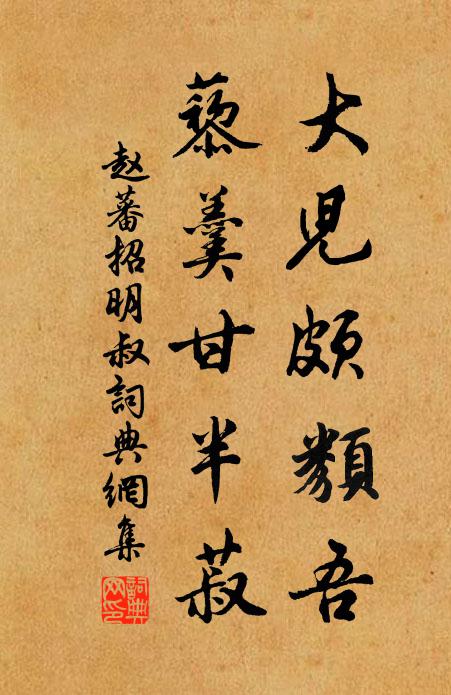 大児頗類吾
藜羹甘半菽
趙蕃招明叔詞典網集
詞典網印